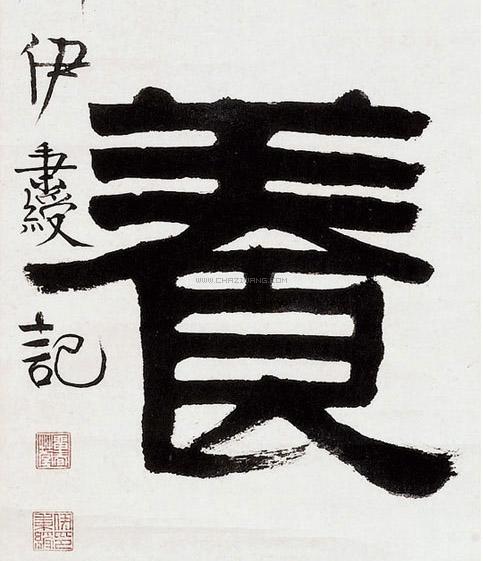 養
伊秉綬記
WWW.CHAZIWANG.COM